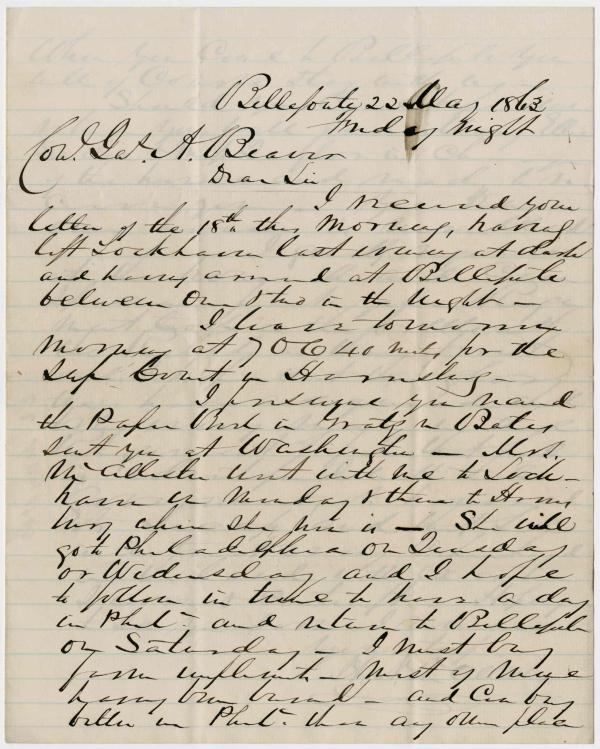 Bellefonte 22 May 1863
Friday night
Col. Jas. A. Beaver
Dear Sir
I received your
letter of the 18th this morning, having
left Lockhaven last evening at dark
and having arrived at Bellefonte
between One & two in the night –
I leave tomorrow
morning at 7 OC 40 mts for the
Sup Court in Harrisburg –
I presume you received
the Paper Book in Gratz v Bates
sent you at Washington – Mrs.
McAllister went with me to Lock-
haven on Monday & thence to Harris
burg where she now is – She will
go to Philadelphia on Tuesday
or Wednesday and I hope
to follow in time to have a day
in Phila. and return to Bellefonte
on Saturday – I must buy
farm implements – most of mine
having been burned – and can buy
better in Phila. than any other place